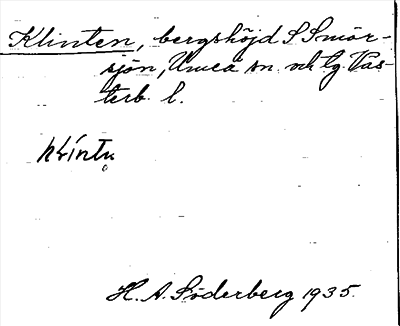 Klinten, bergshöjd S Smör-
sjön, Umeå sn. och lg. Väs-
terb. l.
klíntn̥
H. A. Söderberg 1935.